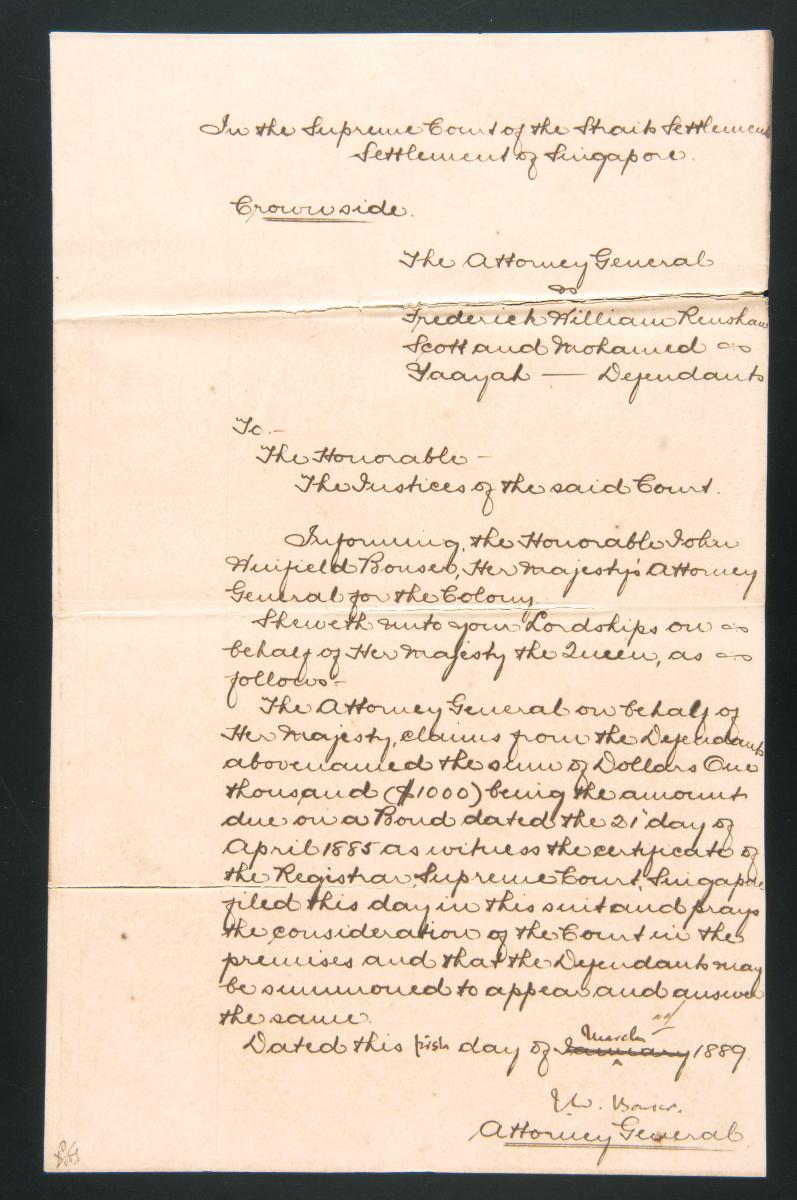 In the Supreme Court of the Straits Settlement
Settlement of Singapore.
Crownside.
The Attorney General
vs
Frederick William Renshaw
Scott and Mohamed
Yaayah — Defendants
To:-
The Honorable -
The Justices of the said Court.
Informing, the Honorable John
Winfield Bonser, Her Majesty's Attorney
General for the Colony
Sheweth unto your Lordships on
behalf of Her Majesty the Queen, as
follows:-
The Attorney General on behalf of
Her Majesty, claims from the Defendants
abovenamed the sum of Dollars One
thousand ($1000) being the amount
due on a Bond dated the 21' day of
April 1885 as witness the certificate of
the Registrar, Supreme Court, Singapore
filed this day in this suit and prays
the consideration of the Court in the
premises and that the Defendants may
be summoned to appear and answer
the same.
March
Dated this first day of January 1889.
J. W. Bonser.
Attorney General